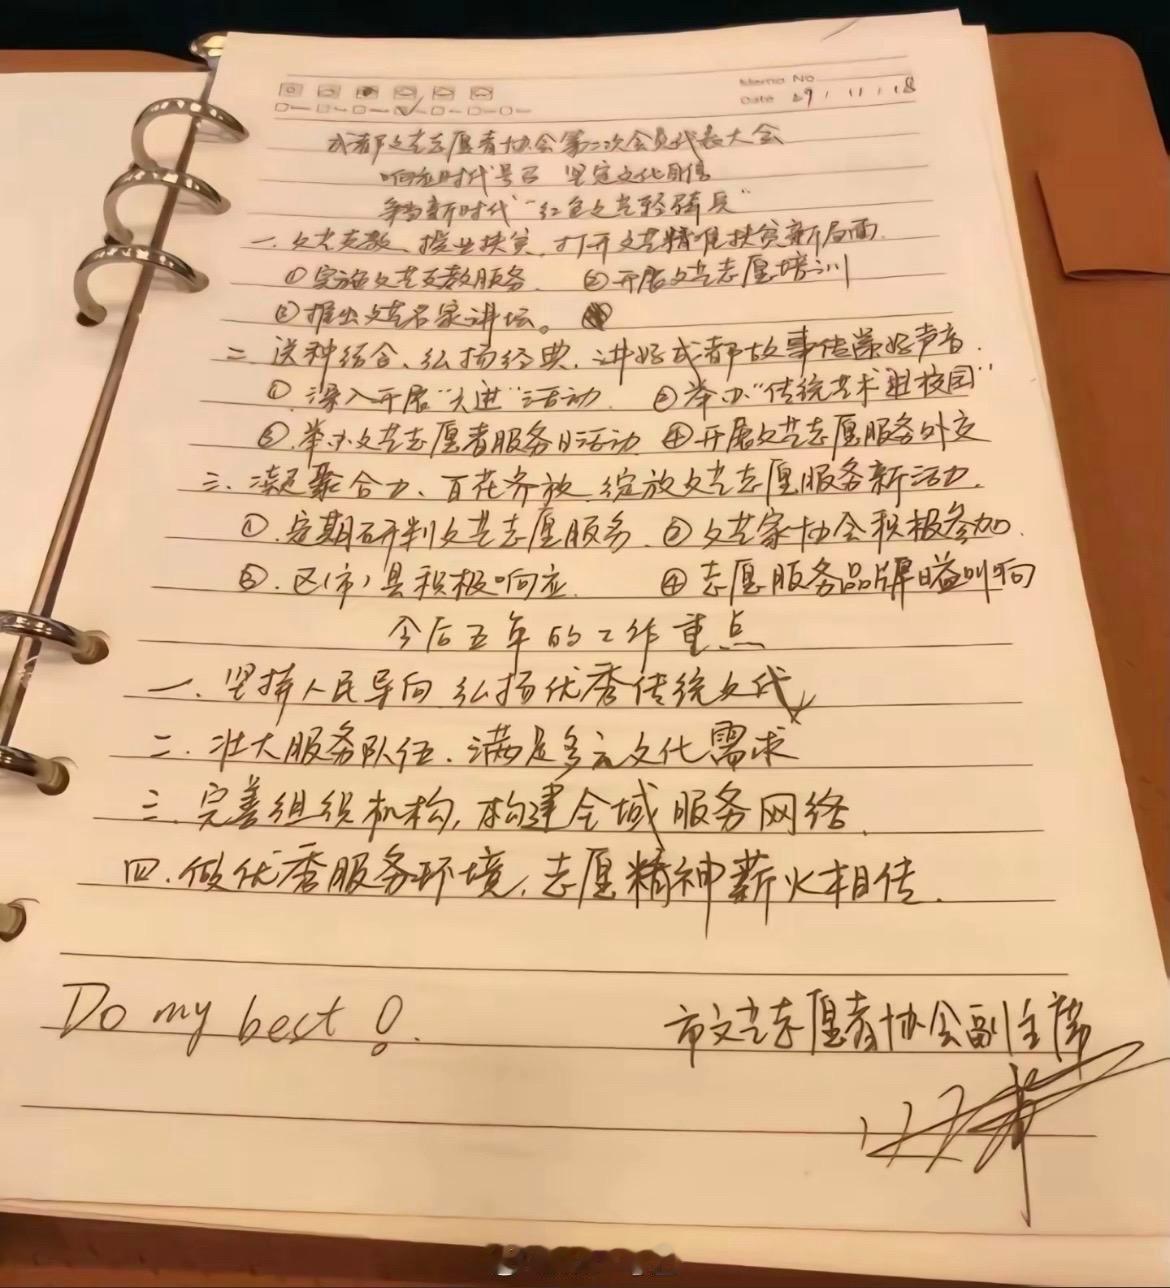 Memo No
Date 29 / 11 / 18
成都文艺志愿者协会第二次会员代表大会
响应时代号召 坚定文化自信
争当新时代“红色文艺轻骑兵”
一.文艺支教、授业扶贫,打开文艺精准扶贫新局面.
①实施文艺支教服务. ②开展文艺志愿培训
③推出文艺名家讲坛。
二.送种结合、弘扬经典,讲好成都故事传蓉好声音.
①.深入开展“大进”活动. ②举办“传统艺术进校园”
③.举办文艺志愿者服务日活动 ④开展文艺志愿服务外交
三.凝聚合力、百花齐放,绽放文艺志愿服务新活力.
①.定期研判文艺志愿服务. ②文艺家协会积极参加.
③.区(市)县积极响应. ④志愿服务品牌日益叫响
今后五年的工作重点
一.坚持人民导向 弘扬优秀传统文化
二.壮大服务队伍.满足多元文化需求
三.完善组织机构,构建全域服务网络.
四.做优秀服务环境,志愿精神薪火相传.
Do my best!
市文艺志愿者协会副主席